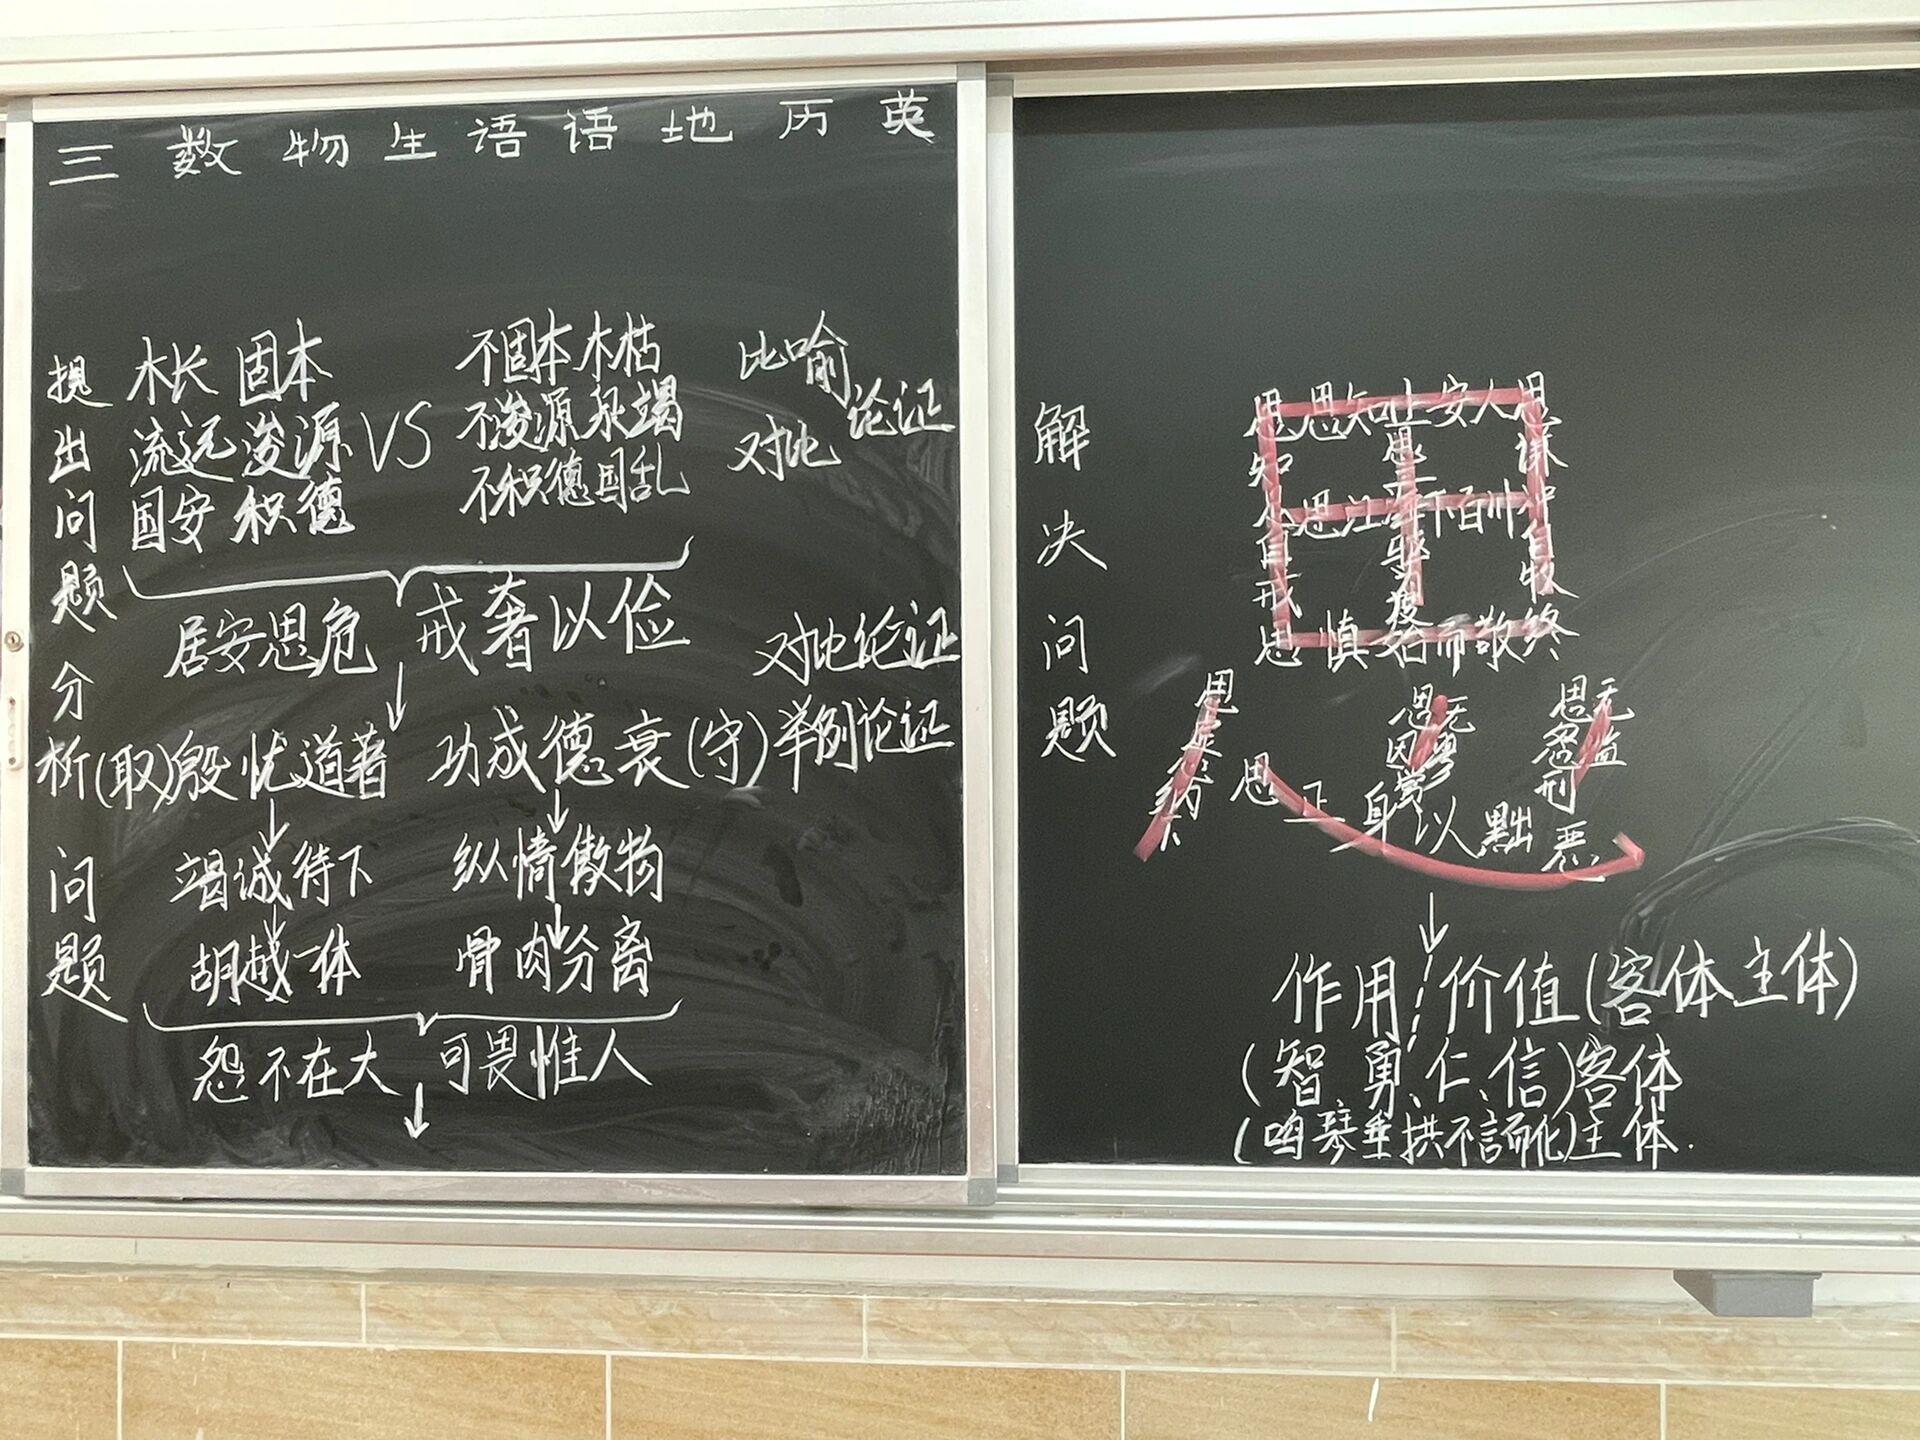 三 数 物 生 语 语 地 历 英
提出问题
木长 固本
流远 浚源
国安 积德
VS
不固本木枯
不浚源泉竭
不积德国乱
比喻
对比
论证
居安思危 戒奢以俭
对比论证
分析问题
(取)殷忧道著 功成德衰(守)举例论证
竭诚待下 纵情傲物
胡越一体 骨肉分离
怨不在大 可畏惟人
解决问题
思知止安人
思知足自戒
思谦冲自牧
思江海下百川
思三驱为度
思慎始而敬终
思壅蔽
思无因
思无
刑
思正身以黜恶
作用 价值(客体主体)
(智、勇、仁、信)客体
(鸣琴垂拱不言而化)主体.